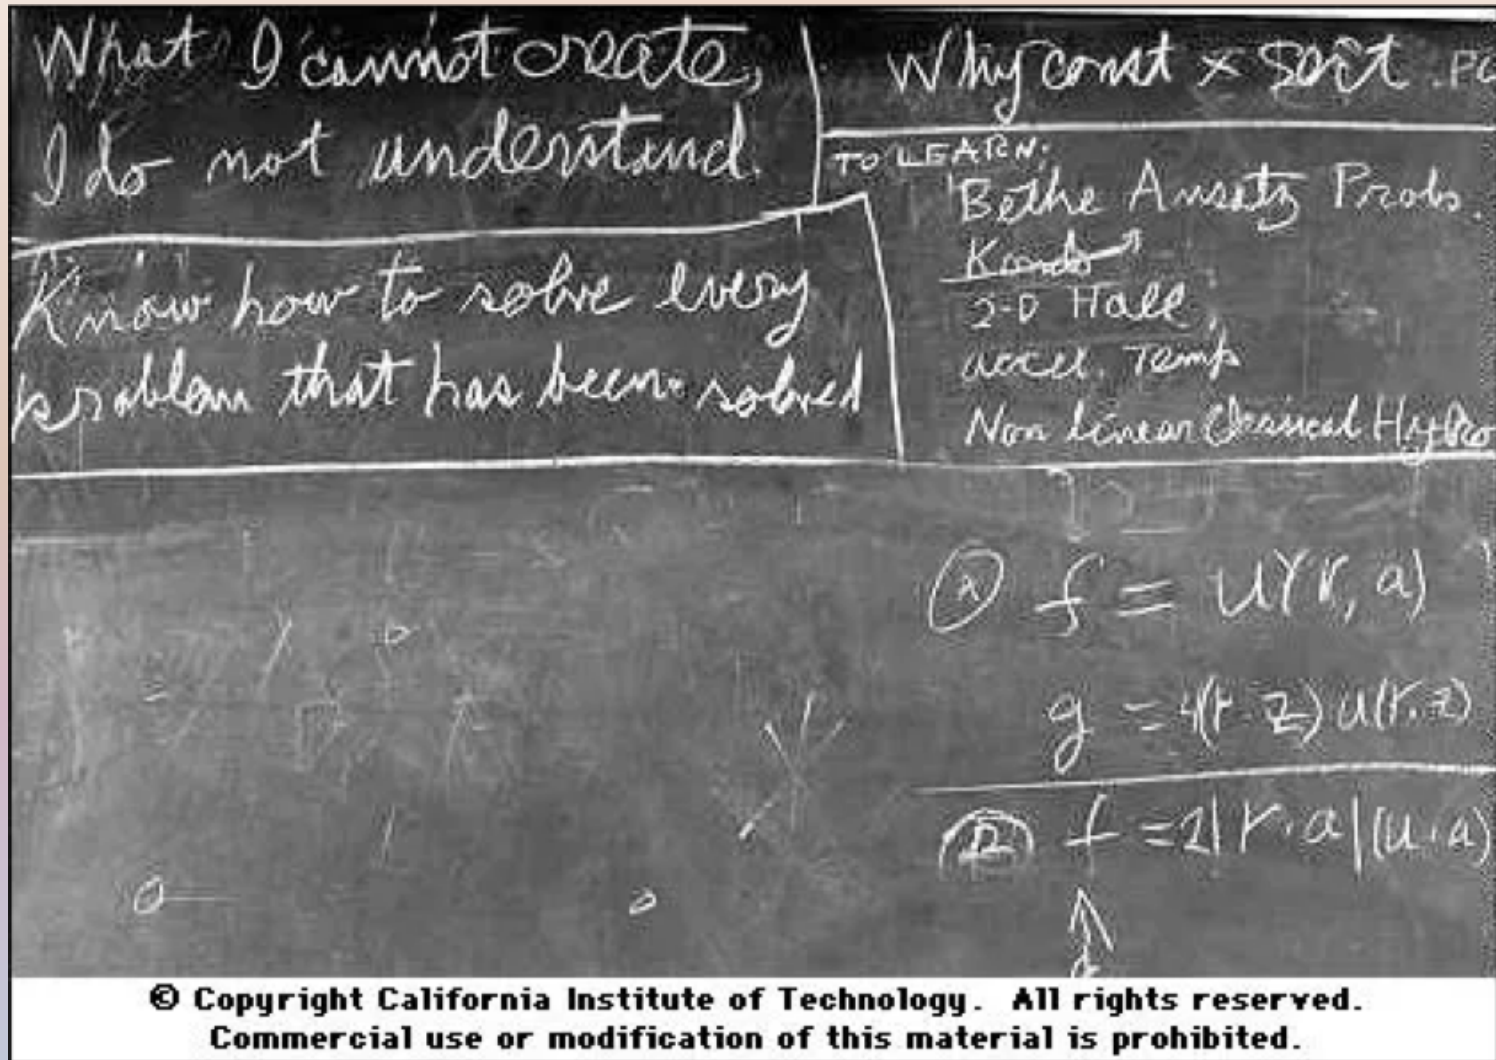 What I cannot create,
I do not understand.
Know how to solve every
problem that has been solved
Why const × sort .PO
TO LEARN:
Bethe Ansatz Probs.
Kondo
2-D Hall
accel. Temp
Non linear Classical Hydro
f = u(r, a)
g = 4(r·z) u(r.z)
f = 2|r·a|(u·a)
© Copyright California Institute of Technology. All rights reserved.
Commercial use or modification of this material is prohibited.